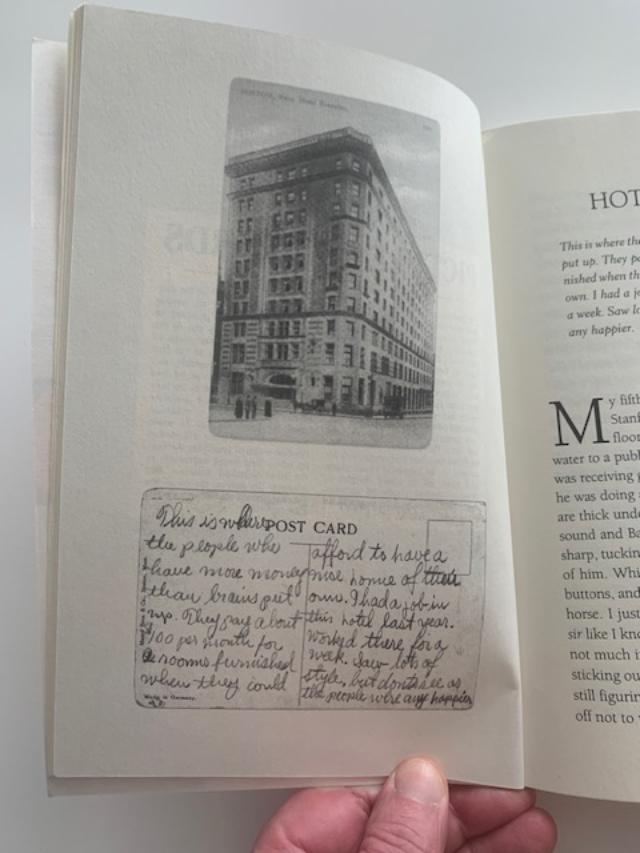 BOSTON, Mass. Hotel
POST CARD
This is where
the people who
have more money
than brains put
up. They pay about
$100 per month for
rooms furnished
when they could
Made in Germany.
afford to have a
nise home of their
own. I had a job in
this hotel last year.
worked there for a
week. Saw lots of
style, but dont see as
the people were any happier
HOT
This is where the
put up. They pa
nished when th
own. I had a jo
a week. Saw lo
any happier.
My fifth
Stanf
floor
water to a publ
was receiving g
he was doing
are thick unde
sound and Ba
sharp, tuckin
of him. Whi
buttons, and
horse. I just
sir like I kno
not much i
sticking ou
still figurin
off not to